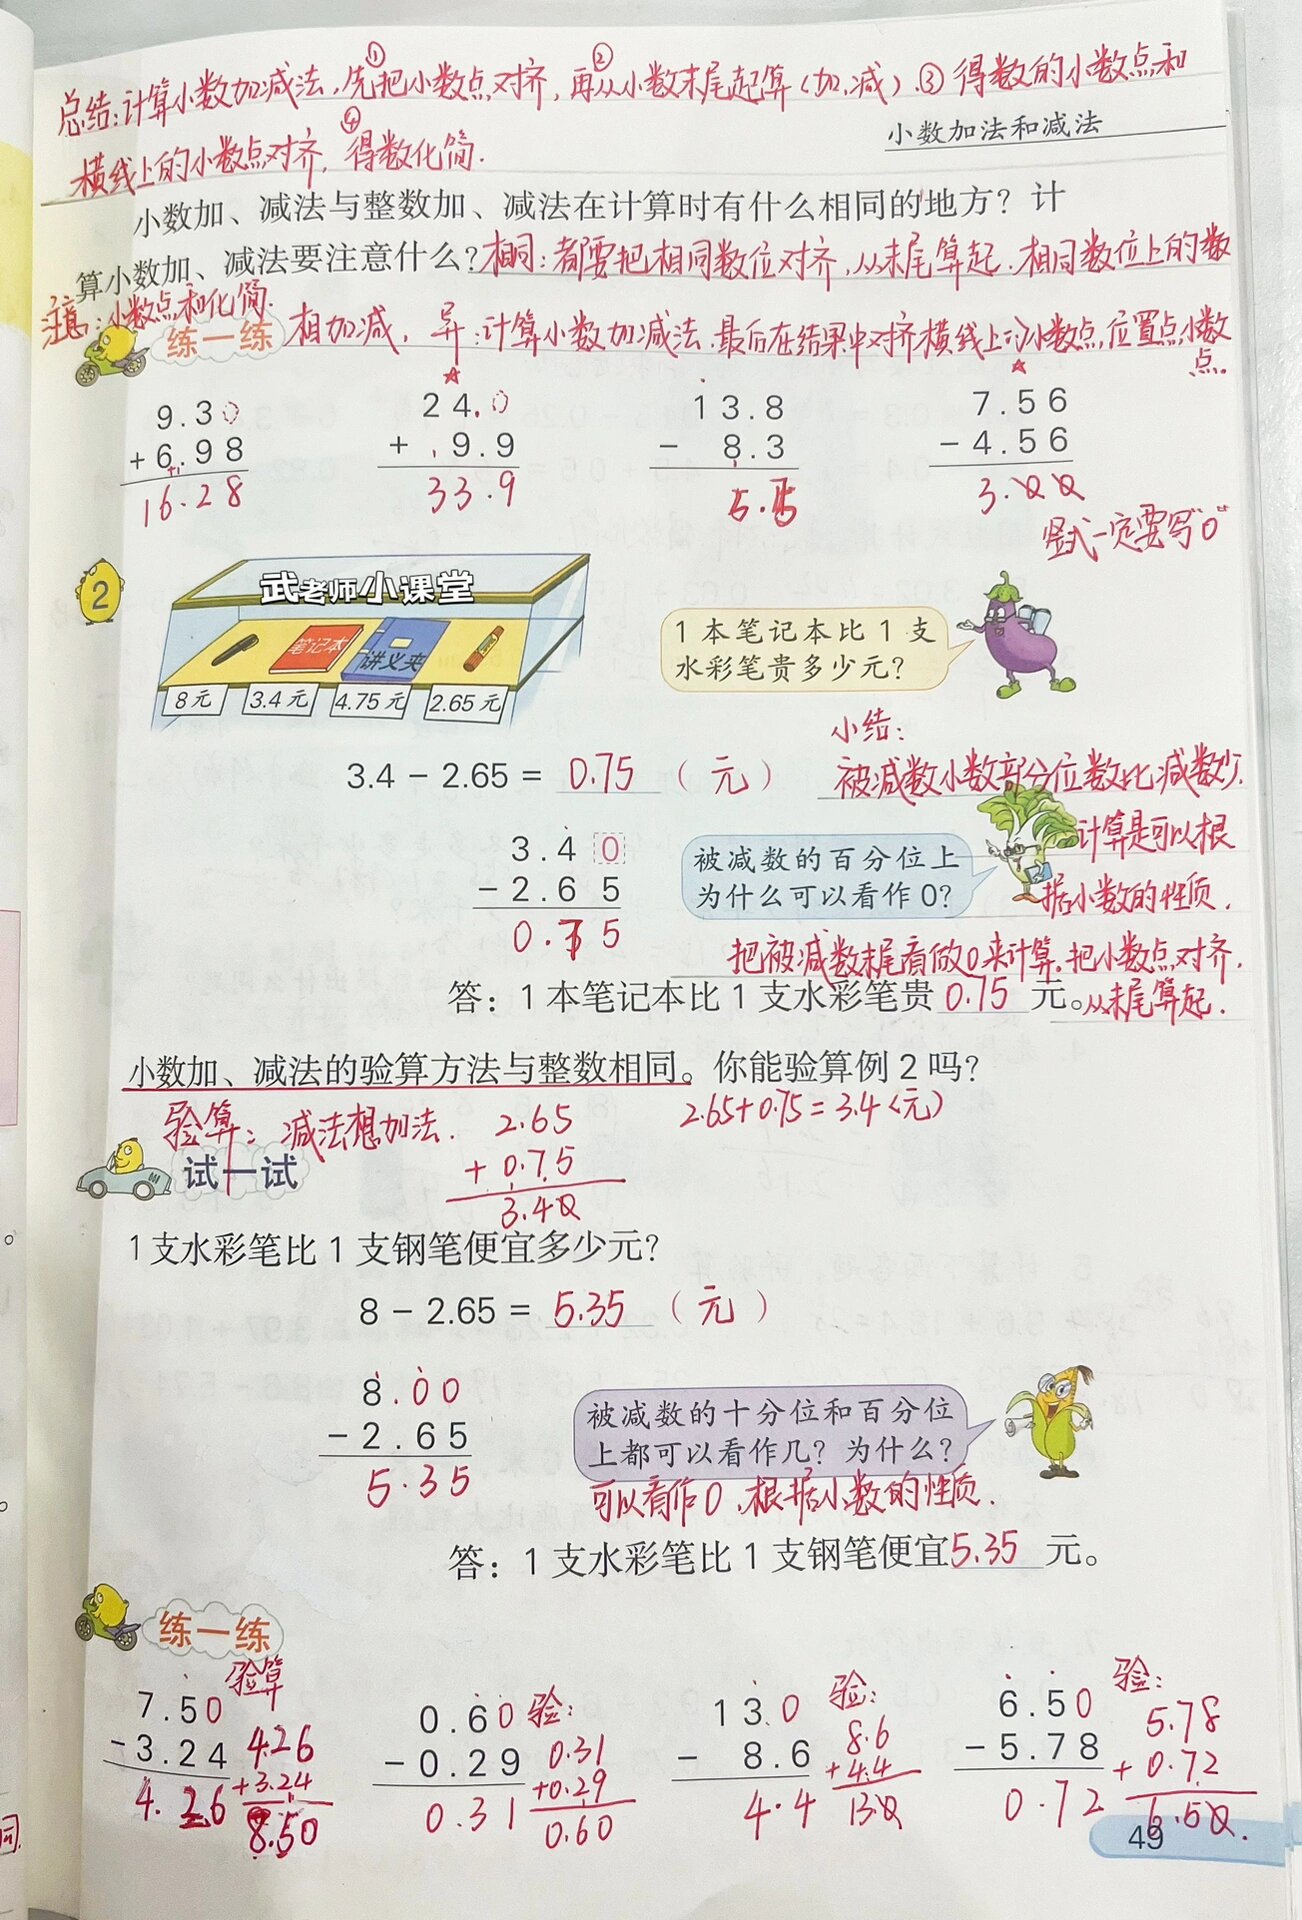 总结:计算小数加减法,①先把小数点对齐,②再从小数末尾起算(加.减).③得数的小数点和
横线上的小数点对齐,④得数化简.
小数加法和减法
小数加、减法与整数加、减法在计算时有什么相同的地方?计
算小数加、减法要注意什么?相同:都要把相同数位对齐,从末尾算起.相同数位上的数
注意:小数点和化简.
练一练 相加减. 异:计算小数加减法.最后在结果中对齐横线上的小数点,位置点小数
点.
9.30 24.0 13.8 7.56
+6.98 + 9.9 - 8.3 -4.56
16.28 33.9 5.5 3.00
竖式一定要写"0"
2
武老师小课堂
笔记本 讲义夹
8元 3.4元 4.75元 2.65元
1本笔记本比1支
水彩笔贵多少元?
小结:
3.4-2.65= 0.75 (元) 被减数小数部分位数比减数少.
计算是可以根
据小数的性质.
把被减数末尾看做0来计算.把小数点对齐.
从末尾算起.
3.40
-2.65
0.75
被减数的百分位上
为什么可以看作0?
答:1本笔记本比1支水彩笔贵0.75元。
小数加、减法的验算方法与整数相同。你能验算例2吗?
验算:减法想加法. 2.65 2.65+0.75=3.4(元)
+0.75
3.40
试一试
1支水彩笔比1支钢笔便宜多少元?
8-2.65= 5.35 (元)
8.00
-2.65
5.35
被减数的十分位和百分位
上都可以看作几?为什么?
可以看作0,根据小数的性质.
答:1支水彩笔比1支钢笔便宜5.35元。
练一练
7.50 验算 0.60 验: 13.0 验: 6.50 验:
-3.24 4.26 -0.29 0.31 - 8.6 8.6 -5.78 5.78
4.26 +3.24 0.31 +0.29 4.4 +4.4 0.72 +0.72
8.50 0.60 13.0 6.50.
49